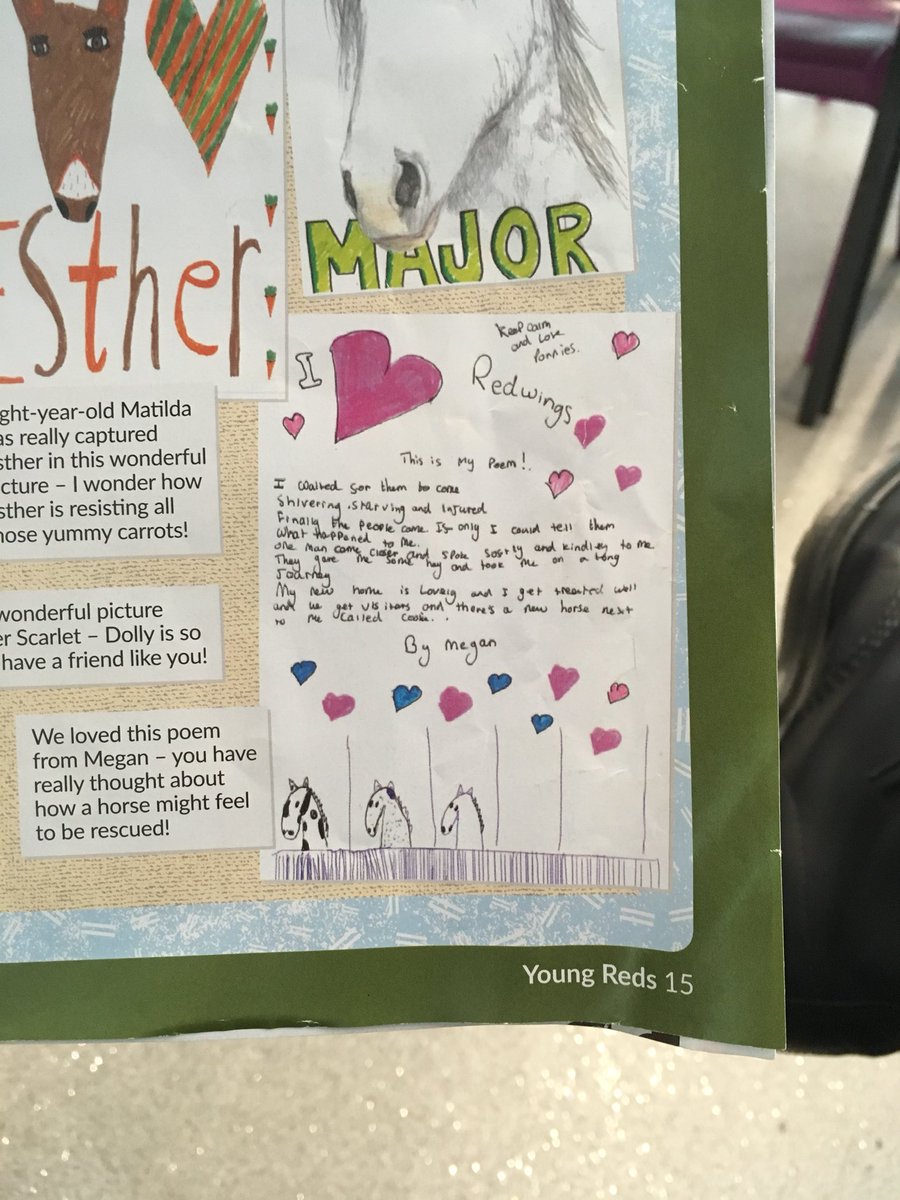 Esther
MAJOR
ght-year-old Matilda
as really captured
sther in this wonderful
cture – I wonder how
sther is resisting all
hose yummy carrots!
wonderful picture
er Scarlet – Dolly is so
have a friend like you!
We loved this poem
from Megan – you have
really thought about
how a horse might feel
to be rescued!
Keep calm
and love
Ponnies.
I
Redwings
This is My Poem!.
I waited for them to come
Shivering, starving and injured
Finally the people came If only I could tell them
what happened to me.
one man came closer and spoke softly and kindley to me
They gave me some hay and took me on a long
Journey
My new home is Lovely and I get treated well
and we get visitors and there's a new horse next
to me called
By megan
Young Reds 15